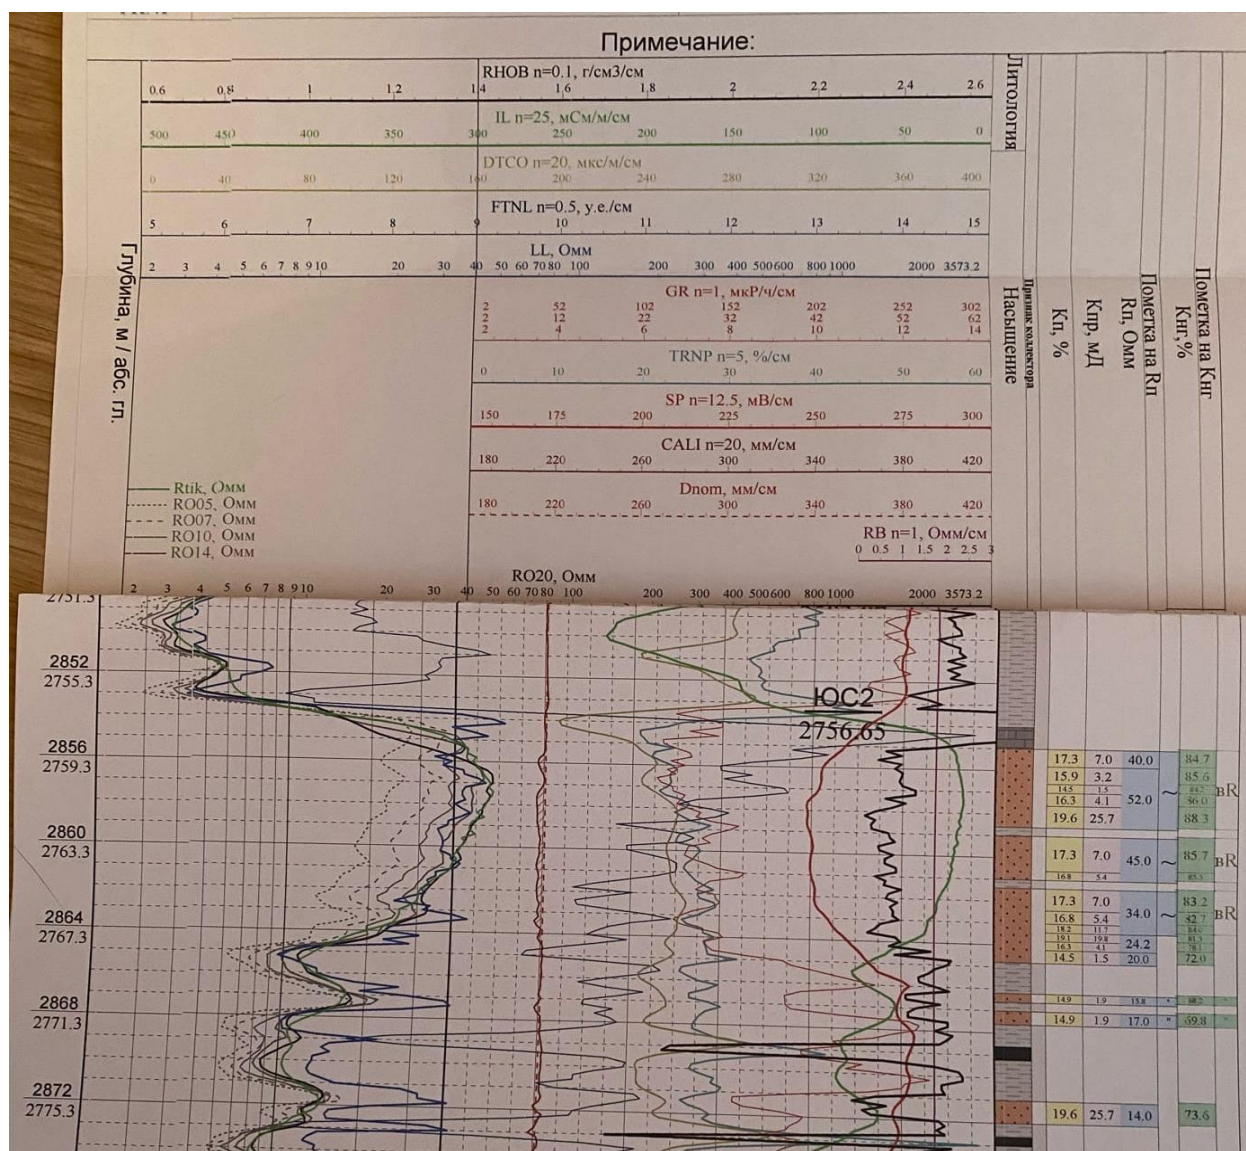 Примечание:
RHOB n=0.1, г/см3/см
0.6 0,8 1 1,2 1,4 1,6 1,8 2 2,2 2,4 2.6
IL n=25, мСм/м/см
500 450 400 350 300 250 200 150 100 50 0
DTCO n=20, мкс/м/см
0 40 80 120 160 200 240 280 320 360 400
FTNL n=0.5, у.е./см
5 6 7 8 9 10 11 12 13 14 15
LL, Омм
2 3 4 5 6 7 8 9 10 20 30 40 50 60 70 80 100 200 300 400 500 600 800 1000 2000 3573.2
GR n=1, мкР/ч/см
2 52 102 152 202 252 302
2 12 22 32 42 52 62
2 4 6 8 10 12 14
TRNP n=5, %/см
0 10 20 30 40 50 60
SP n=12.5, мВ/см
150 175 200 225 250 275 300
CALI n=20, мм/см
180 220 260 300 340 380 420
Dnom, мм/см
180 220 260 300 340 380 420
RB n=1, Омм/см
0 0.5 1 1.5 2 2.5 3
Rtik, Омм
RO05, Омм
RO07, Омм
RO10, Омм
RO14, Омм
RO20, Омм
2 3 4 5 6 7 8 9 10 20 30 40 50 60 70 80 100 200 300 400 500 600 800 1000 2000 3573.2
Глубина, м / абс. гл.
Литология
Признак коллектора
Насыщение
Кп, %
Кпр, мД
Rп, Омм
Пометка на Rп
Кнг,%
Пометка на Кнг
2751.3
2852
2755.3
ЮС2
2756,65
2856
2759.3
2860
2763.3
2864
2767.3
2868
2771.3
2872
2775.3
17.3 7.0 40.0 84.7
15.9 3.2 85.6
14.5 1.5
16.3 4.1 52.0 ~ 86.0 вR
19.6 25.7 88.3
17.3 7.0 45.0 ~ 85.7 вR
16.8 5.4
17.3 7.0 34.0 ~ 83.2 вR
16.8 5.4 82.7
18.2 11.7
19.1 19.8
16.3 4.1 24.2
14.5 1.5 20.0 72.0
14.9 1.9 15.8 "
14.9 1.9 17.0 " 69.8
19.6 25.7 14.0 73.6